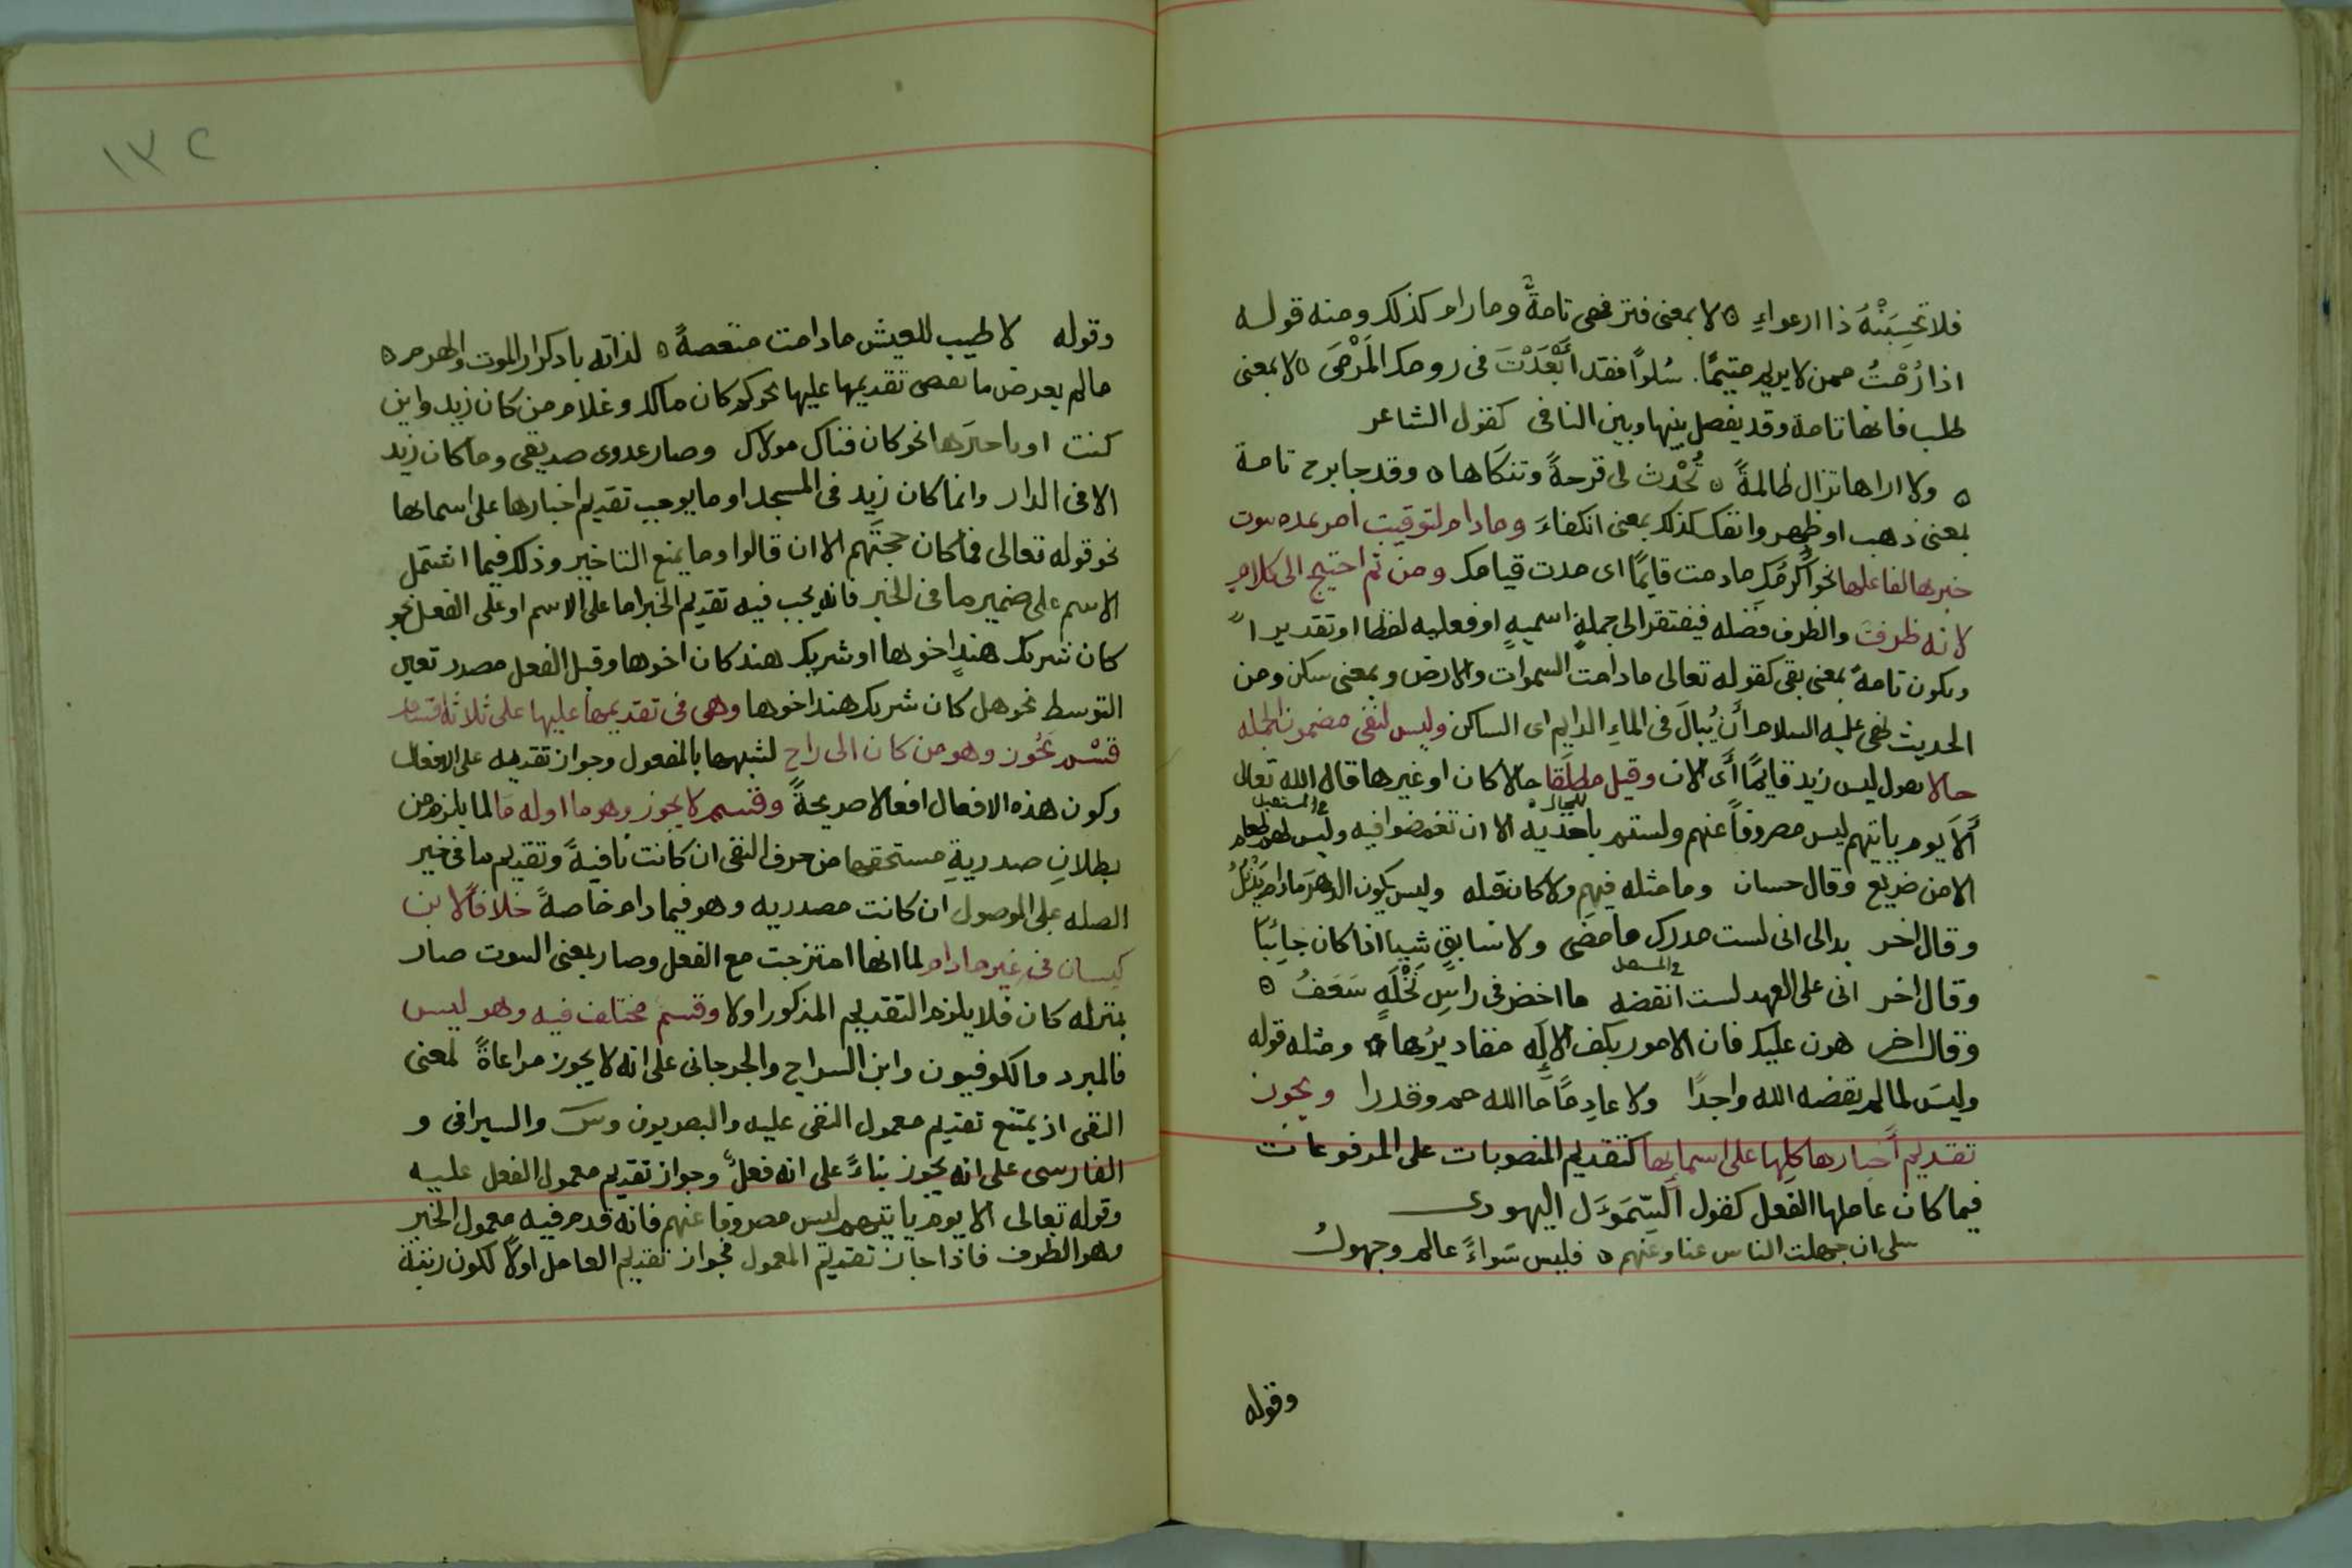 فلا تحسِبَنْهُ ذا ارعواءِ ه لا بمعنى فتر فهى تامةٌ وما رام كذلك ومنه قوله
اذا رُمْتُ ممن لا يريم متيمًا. سُلوًا فقد ابْعَدْتَ فى رومك المَرْمَى ه لا بمعنى
طلب فانها تامة وقد يفصل بينها وبين النافى كقول الشاعر
ه ولا اراها تزال ظالمةً ه تُحْدث لى قرحةً وتنكاها ه وقد جا برح تامة
بمعنى ذهب او ظهر وانفك كذلك بمعنى انكفاءَ وما دام لتوقيت امر بمده ثبوت
خبرها لفاعلها نحو أُكْرمُكِ مادمت قايمًا اى مدت قيامك ومن ثم احتيج الى كلام
لانه ظرفت والظرف فضله فيفتقر الى جملةٍ اسميهٍ او فعليه لفظا او تقديرا
ويكون تامةً بمعنى بقى كقوله تعالى مادامت السموات والارض وبمعنى سكن ومن
الحديث نهى عليه السلام أن يُبالَ فى الماءِ الدايم اى الساكن وليس لنفى مضمون الجمله
حالا تقول ليس زيد قايمًا أى الان وقيل مطلَقا حالا كان او غيرها قال الله تعالى
للحال ه فى المستقبل
أَلَا يوم ياتيهم ليس مصروفاً عنهم ولستم باخذيه الا ان تغمضوا فيه وليس لهم طعام
الا من ضريع وقال حسان وما مثله فيهم ولا كان قبله وليس يكون الدهرَ مادام يَذْبُلُ
وقال اخر بدا لى انى لست مدرك ما مضى ولا سابقٍ شيا اذا كان جائِيًا
فى المستقبل
وقال اخر انى على العهد لست انقضه ما اخضر فى راسِ نَخْلَهٍ سَعَفُ ه
وقال اخر هون عليك فان الامور بكف الالِه مقاديرُها ه ومثله قوله
وليسَ لما لم يقضه الله واجدًا ولا عادِمًا ما الله حم وقدرا ويجوز
تقديم أخبارها كلِها على اسمائِها كتقديم المنصوبات على المرفوعات
فيما كان عاملها الفعل كقول السَّمَوءَل اليهودى
سلى ان جهلت الناس عنا وعنهم ه فليس سَواءً عالم وجهولُ
وقوله
١٣٢
وقوله لا طيب للعيش مادامت منغصةً ه لذاته بادكار الموت والهرم ه
مالم يعرض ما تقديمها عليها نحو كم كان مالك وغلام من كان زيد واين
كنت او تاخيرَها نحو كان فتاك مولاك وصار عدوى صديقى وما كان زيد
الا فى الدار وانما كان زيد فى المسجد او ما يوجب تقديم اخبارها على اسمائها
نحو قوله تعالى فما كان حجتَهم الا ان قالوا وما يمنع التاخير وذلك فيما اشتمل
الاسم على ضمير ما فى الخبر فانه يجب فيه تقديم الخبر اما على الاسم او على الفعل نحو
كان شريك هندٍ اخوها او شريك هند كان اخوها وقبل الفعل مصدر تعين
التوسط نحو هل كان شريك هند اخوها وهى فى تقديمها عليها على ثلاثة اقسام
قسْم يجُوز وهو من كان الى راح لشبهها بالمفعول وجواز تقديمه على الافعال
وكون هذه الافعال افعالا صريحةً وقسم لا يجوز وهو ما اوله مَا لما يلزم من
بطلانِ صدريةِ مستحقها من حرف النفى ان كانت نافيةً وتقديم ما فى خبر
الصله على الموصول ان كانت مصدريه وهو فيما دام خاصةً خلافًا لابن
كيسان فى غير مادام لما انها امتزجت مع الفعل وصار بمعنى الثبوت صار
بمنزله كان فلا يلزم التقديم المذكور اولا وقسم مختلف فيه وهو ليس
فالمبرد والكوفيون وابن السراج والجرجانى على انه لا يجوز مراعاةً لمعنى
النفى اذ يمتنع تقديم معمول النفى عليه والبصريون وسَ والسيرافى و
الفارسى على انه يجوز بناءً على انه فعلٌ وجواز تقديم معمول الفعل عليه
وقوله تعالى الا يوم ياتيهم ليس مصروفا عنهم فانه قدم فيه معمول الخبر
وهو الظرف فاذا جاز تقديم المعمول فجواز تقديم العامل اولاً لكون رتبة